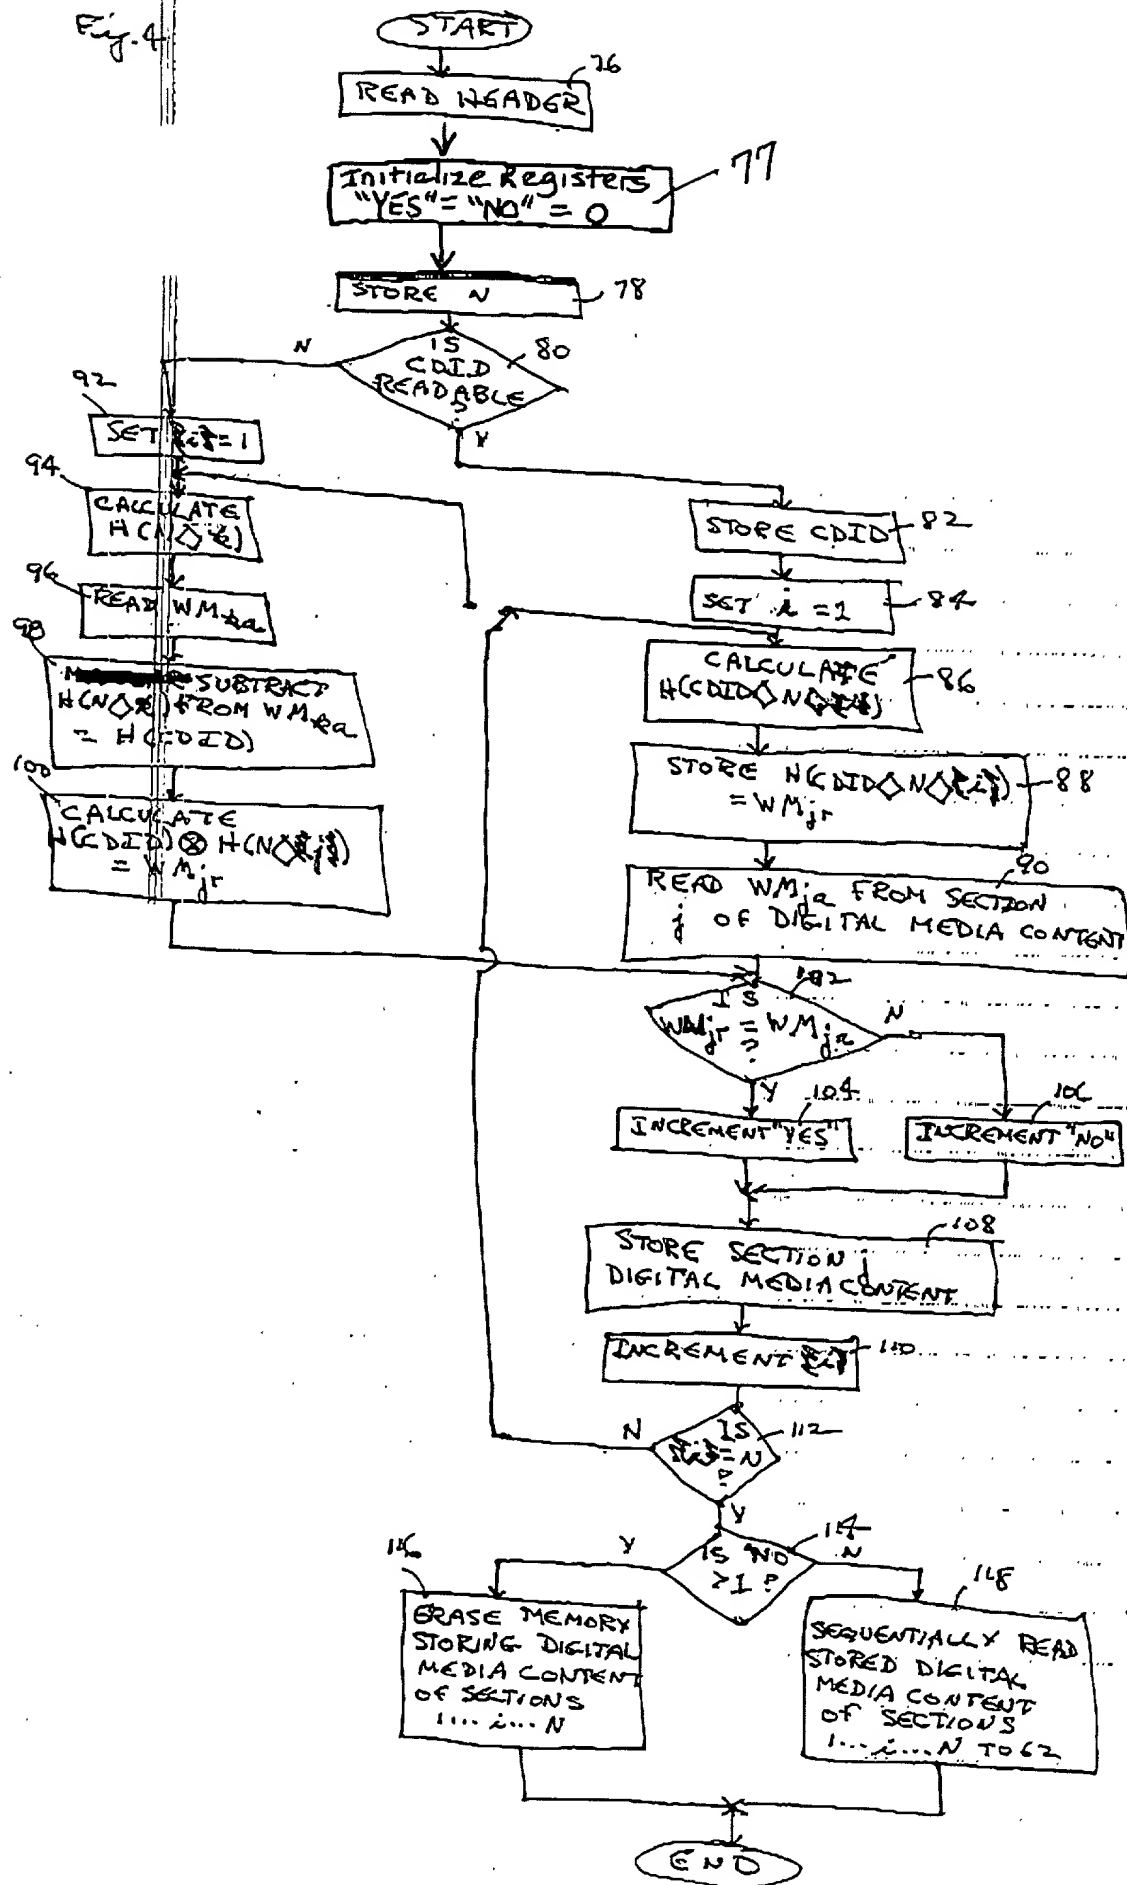 Fig. 4
START
76
READ HEADER
77
Initialize Registers
"YES" = "NO" = 0
78
STORE N
80
IS
CDID
READABLE
?
N
Y
92
SET = 1
94
CALCULATE
H(N◇
96
READ WM
98
SUBTRACT
H(N◇ FROM WM
= H(CDID)
100
CALCULATE
H(CDID) ⊗ H(N◇
= WMjr
82
STORE CDID
84
SET i = 1
86
CALCULATE
H(CDID◇N◇
88
STORE H(CDID◇N◇{i})
= WMjr
90
READ WMja FROM SECTION
j OF DIGITAL MEDIA CONTENT
102
IS
WMjr = WMja
?
N
Y
104
INCREMENT "YES"
106
INCREMENT "NO"
108
STORE SECTION j
DIGITAL MEDIA CONTENT
110
INCREMENT {i}
112
IS
= N
?
N
Y
114
IS "NO
>1?
Y
N
116
ERASE MEMORY
STORING DIGITAL
MEDIA CONTENT
OF SECTIONS
1... i... N
118
SEQUENTIALLY READ
STORED DIGITAL
MEDIA CONTENT
OF SECTIONS
1... i... N TO 62
END